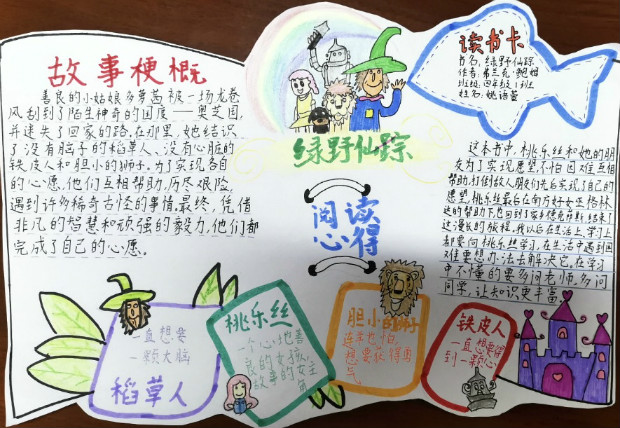 故事梗概
善良的小姑娘多萝茜被一场龙卷
风刮到了陌生神奇的国度——奥芝国,
并迷失了回家的路,在那里,她结识
了没有脑子的稻草人、没有心脏的
铁皮人和胆小的狮子。为了实现各自
的心愿,他们互相帮助,历尽艰险,
遇到许多稀奇古怪的事情,最终,凭借
非凡的智慧和顽强的毅力,他们都
完成了自己的心愿。
绿野仙踪
阅读
心得
读书卡
书名:绿野仙踪
作者:弗兰克·鲍姆
班级:四年级1班
姓名:姚语萱
这本书中,桃乐丝和她的朋
友为了实现愿望,不怕困难互相
帮助,打倒敌人朋友们先后实现了自己的
愿望,桃乐丝最后在南方好女巫格林
达的帮助下也回到了家乡想克萨斯,结束了
这漫长的旅程,我以后在生活上,学习上
都要向桃乐丝学习,在生活中遇到困
难要想办法去解决它,在学习
中不懂的要多问老师,多问
同学,让知识更丰富
一直想要
一颗大脑
稻草人
桃乐丝
一个心地善
良的女孩,
故事的女主
角
胆小的狮子
连本也怕,
想要获得勇
气
铁皮人
一直想要得
到一颗心